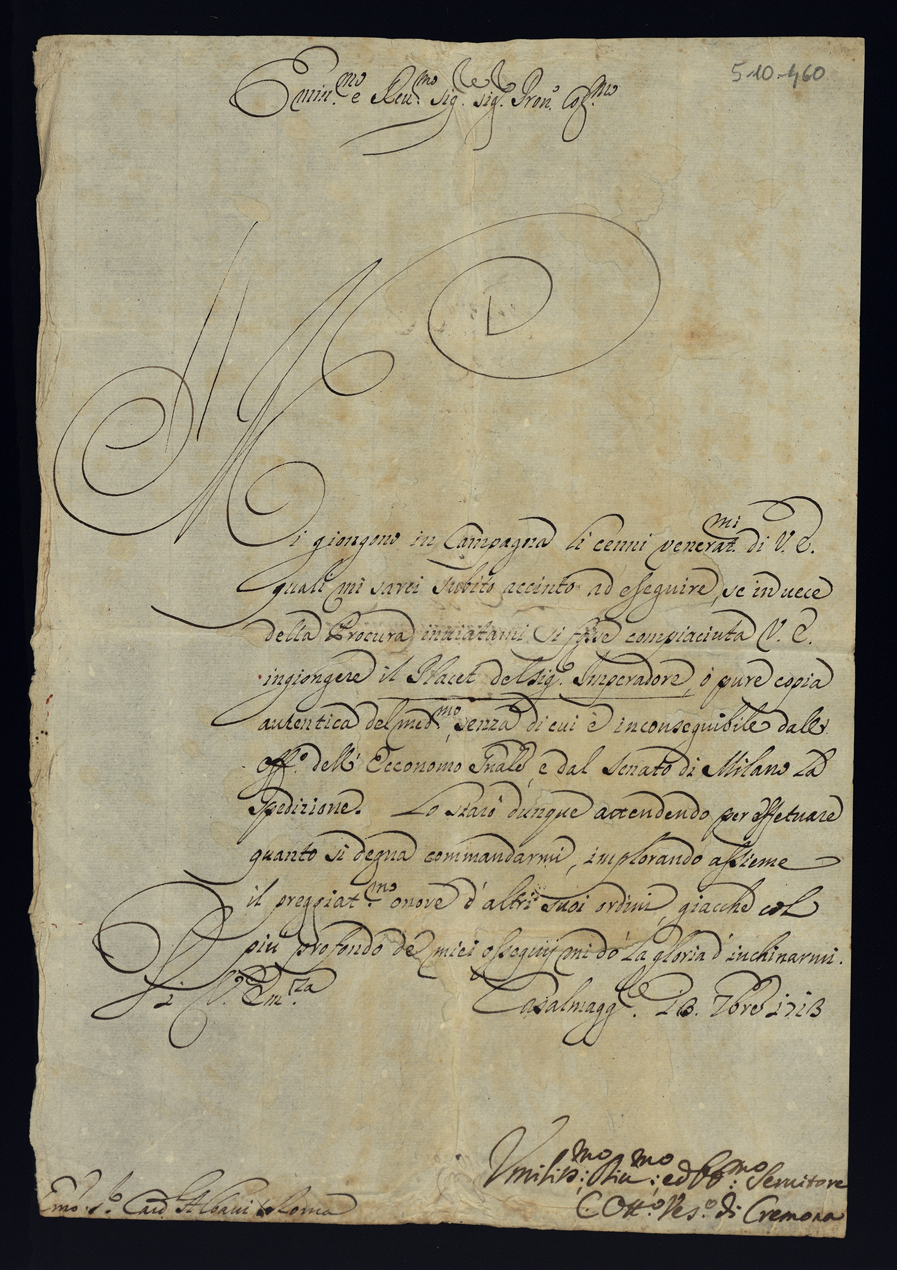 5-10-460
Emin.mo e Reu.mo Sig.r Sig.r Pron. Col.mo
Mi giongono in Campagna li cenni venerat.mi di V. E.
quali mi sarei subito accinto ad esseguire, se in uece
della Procura inuiatami si fosse compiaciuta V. E.
ingiongere il Placet del Sig.r Imperadore, ò pure copia
autentica del med.mo, senza di cui è inconseguibile dall'
Off.o dell' Ecconomo Gnale, e dal Senato di Milano La
spedizione. Lo starò dunque attendendo per effetuare
quanto si degna commandarmi, implorando assieme
il preggiat.mo onore d'altri suoi ordini, giacche col
più profondo de miei ossequij mi dò La gloria d'inchinarmi.
Di V. Em.za Casalmagg.e 13. 7bre 1713
Umiliss:mo Diu:mo ed Obb:mo Seruitore
Emo. S.r Card. Albani Roma C. Ott.o Ves.o di Cremona